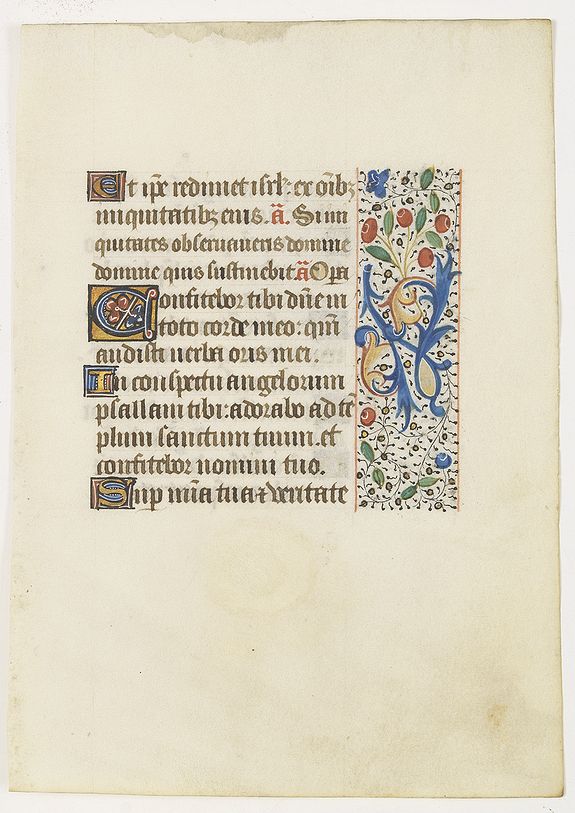 Et ip̄e redimet isrl̄: ex oīb3
iniquitatib3 eius. ā. Si ini
quitates obseruaueris domine
domine quis sustinebit. ā Opa
Confitebor tibi dn̄e in
toto corde meo: qm̄
audisti uerba oris mei.
In conspectu angelorum
psallam tibi: adorabo ad te
plum sanctum tuum. et
confitebor nomini tuo.
Sup mīa tua ⁊ veritate